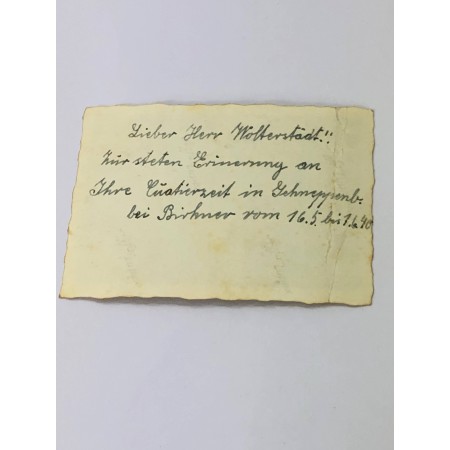 Lieber Herr Wolterstädt!!
Zur steten Erinerung an
Ihre Cuatierzeit in Schneppenb.
bei Birkner vom 16.5. bis 1.6.40